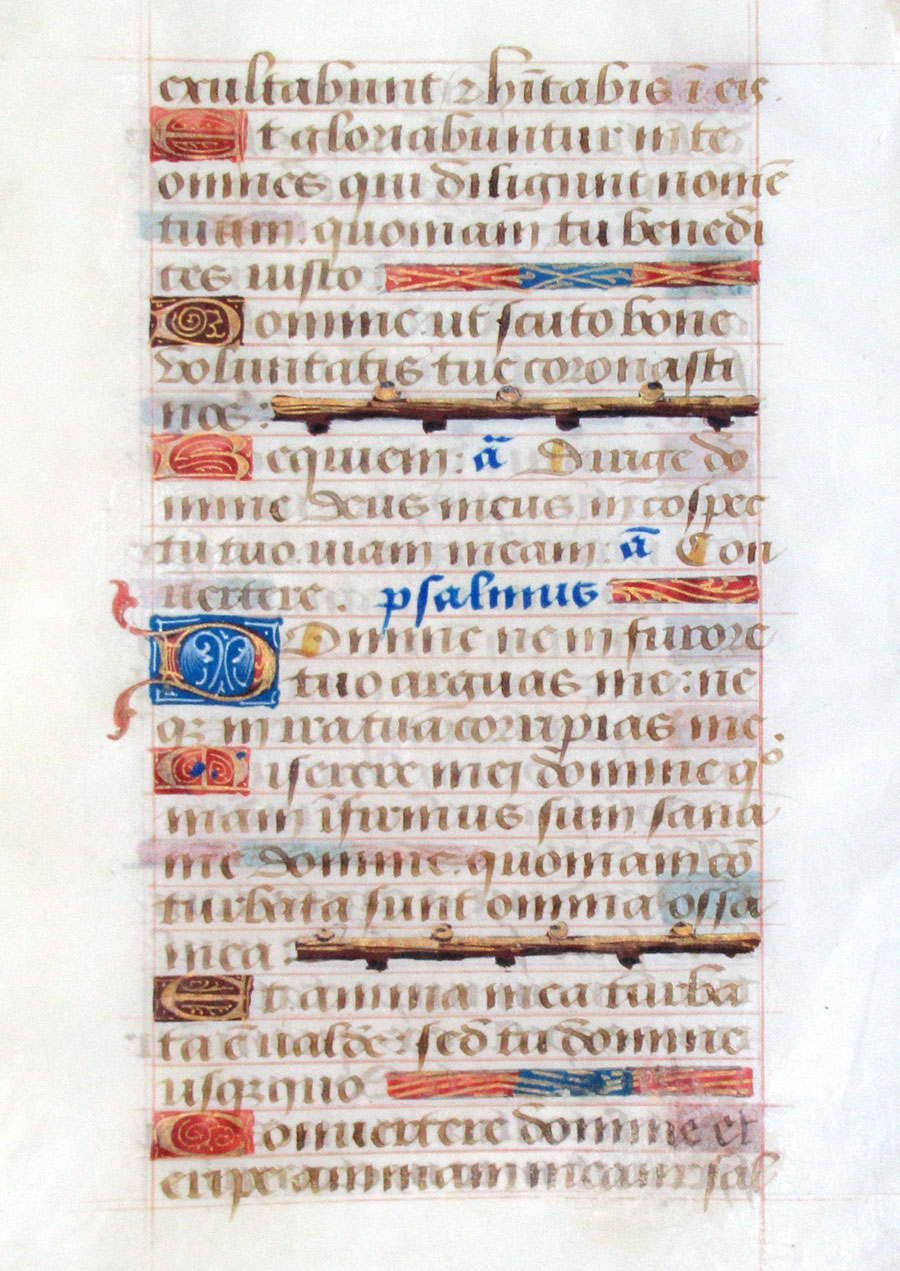 exultabunt ⁊ hītabis ī eis.
Et gloriabuntur in te
omnes qui diligunt nomē
tuum. quoniam tu benedi
ces iusto
Domine ut scuto bone
voluntatis tue coronasti
nos:
Requiem: ā Dirige do
mine deus meus in cōspec
tu tuo viam meam: ā Con
vertere. psalmus
Domine ne in furore
tuo arguas me: ne
qꝫ in ira tuā corripias me.
Miserere mei domine qº
niam īfirmus sum sana
me domine. quoniam cō
turbata sunt omnia ossa
mea:
Et anima mea turba
ta ē valde: sed tu domine
usqꝫquo
Convertere domine et
eripe animam meam: sal